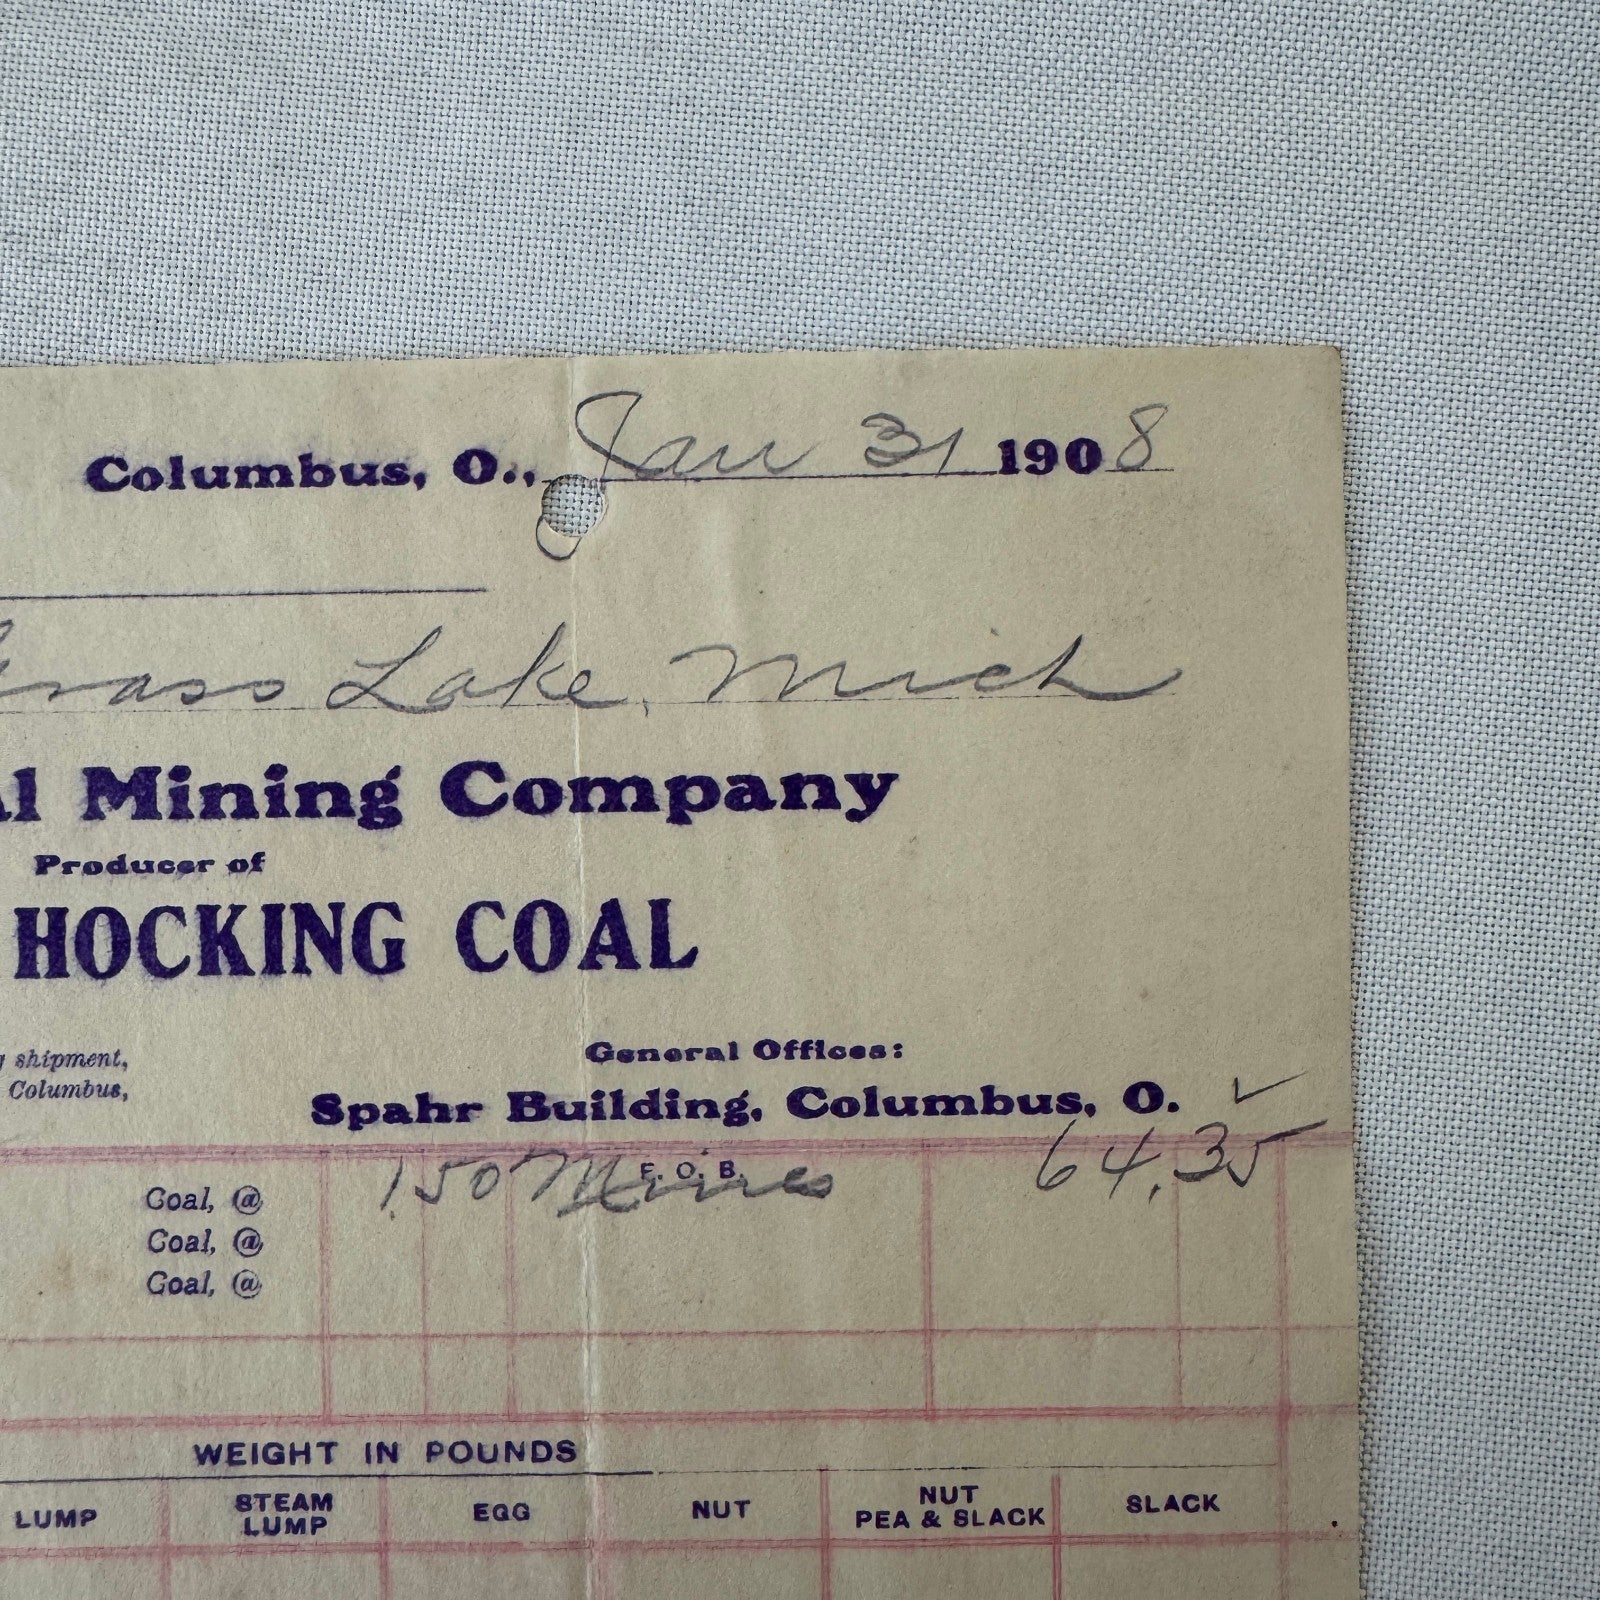 Columbus, O., Jan 31 1908
Grass Lake, Mich
Mining Company
Producer of
HOCKING COAL
shipment,
Columbus,
General Offices:
Spahr Building, Columbus, O.
Coal, @ 1.50 Mines F. O. B. 64.35
Coal, @
Coal, @
WEIGHT IN POUNDS
LUMP
STEAM LUMP
EGG
NUT
NUT PEA & SLACK
SLACK